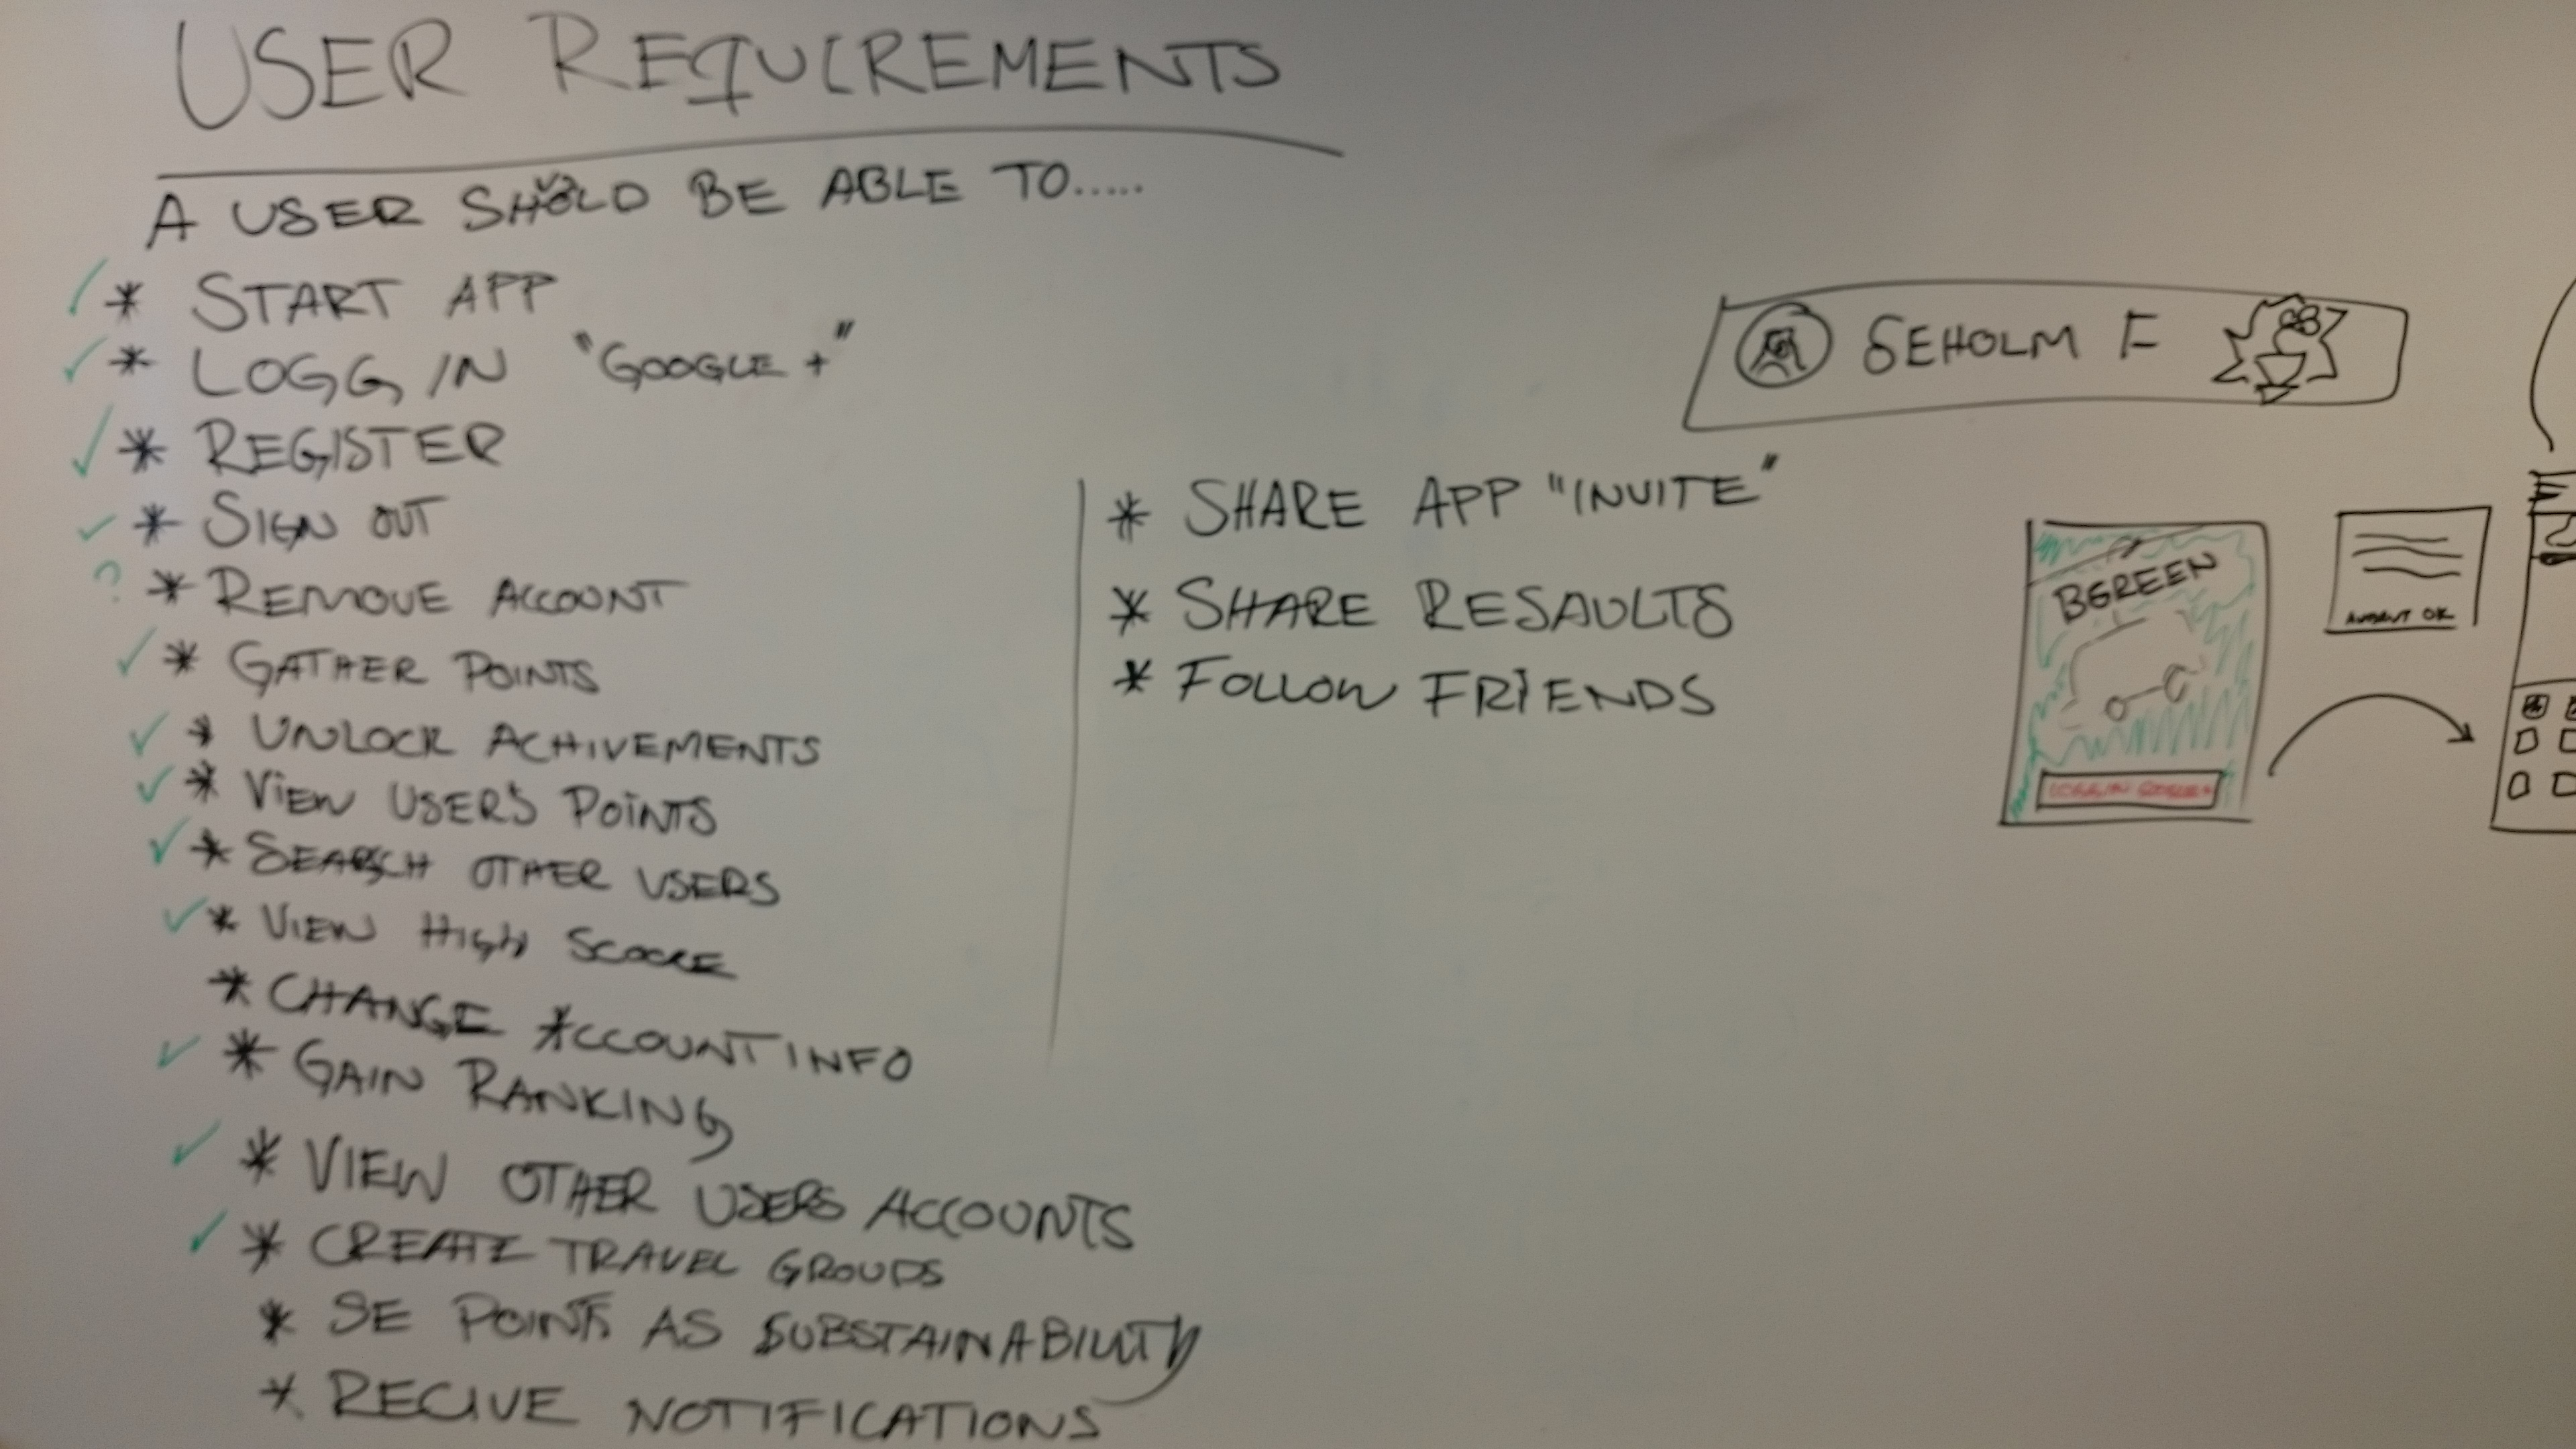 USER REQUIREMENTS
A USER SHOULD BE ABLE TO.....
✓ * START APP
✓ * LOGG IN "GOOGLE +"
✓ * REGISTER
✓ * SIGN OUT
? * REMOVE ACCOUNT
✓ * GATHER POINTS
✓ * UNLOCK ACHIVEMENTS
✓ * VIEW USER'S POINTS
✓ * SEARCH OTHER USERS
✓ * VIEW HIGH SCOORE
* CHANGE ACCOUNT INFO
✓ * GAIN RANKING
✓ * VIEW OTHER USERS ACCOUNTS
✓ * CREATE TRAVEL GROUPS
* SE POINTS AS SUBSTAINABILITY
* RECIVE NOTIFICATIONS
* SHARE APP "INVITE"
* SHARE RESAULTS
* FOLLOW FRIENDS
SEHOLM F
BGREEN
LOGG IN GOOGLE+
OK